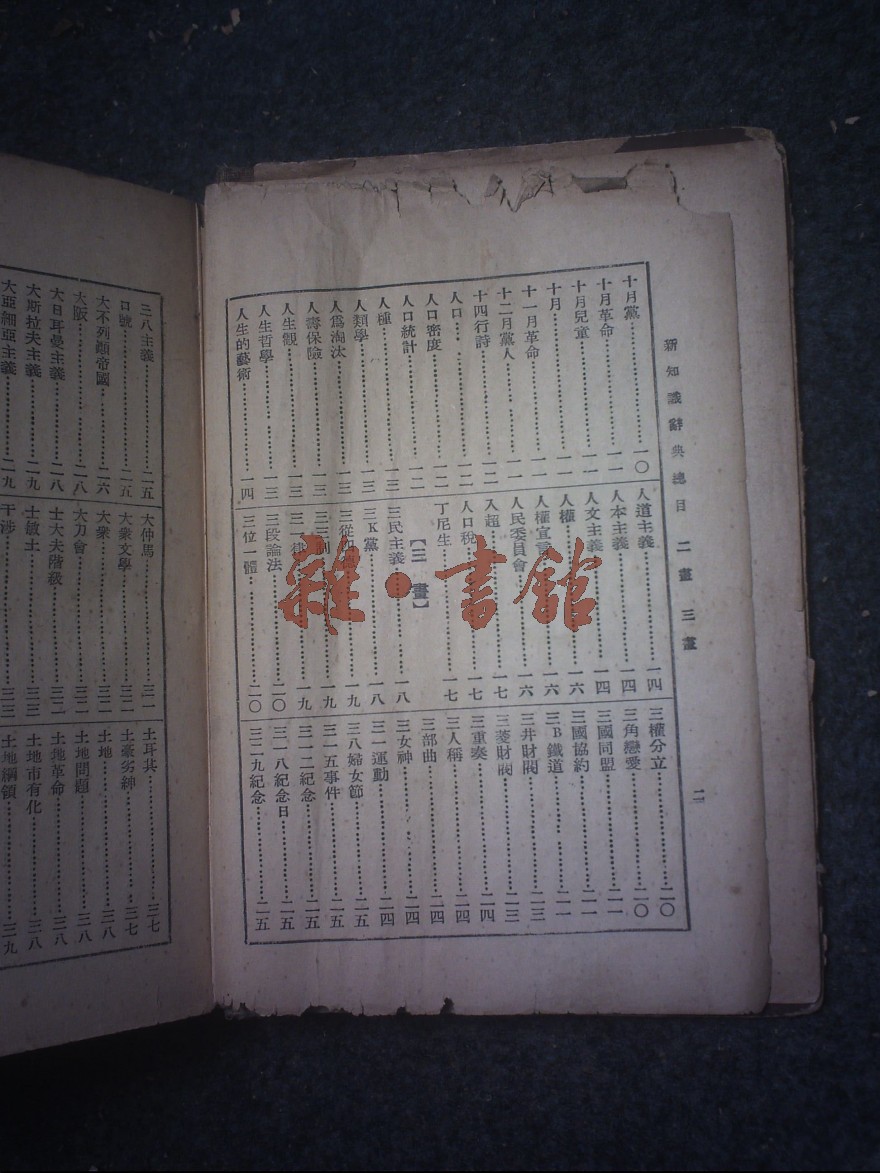 新知識辭典總目 二畫 三畫
二
十月黨……一〇
十月革命……一一
十月兒童……一一
十月……一一
十一月革命……一一
十二月黨人……一一
十四行詩……一二
人口……一二
人口密度……一二
人口統計……一二
人種……一三
人類學……一三
人爲淘汰……一三
人壽保險……一三
人生觀……一三
人生哲學……一三
人生的藝術……一四
人道主義……一四
人本主義……一四
人文主義……一四
人權……一六
人權宣言……一六
人民委員會……一六
入超……一七
人口稅……一七
丁尼生……一七
【三畫】
三民主義……一八
三K黨……一八
三從四德……一九
三三制……一九
三一律……一九
三段論法……二〇
三位一體……二〇
三權分立……二〇
三角戀愛……二〇
三國同盟……二一
三國協約……二一
三B鐵道……二一
三井財閥……二三
三菱財閥……二三
三重奏……二四
三人稱……二四
三部曲……二四
三女神……二四
三一運動……二四
三八婦女節……二五
三一五事件……二五
三一二紀念……二五
三一八紀念日……二五
三二九紀念……二五
三八主義……二五
口號……二五
大不列顛帝國……二六
大阪……二八
大日耳曼主義……二八
大斯拉夫主義……二九
大亞細亞主義……二九
大仲馬……三一
大衆文學……三二
大衆……三二
大刀會……三二
士大夫階級……三二
士敏土……三三
干涉……三三
土耳其……三七
土豪劣紳……三七
土地……三八
土地問題……三八
土地革命……三八
土地市有化……三八
土地綱領……三九
雜·書館